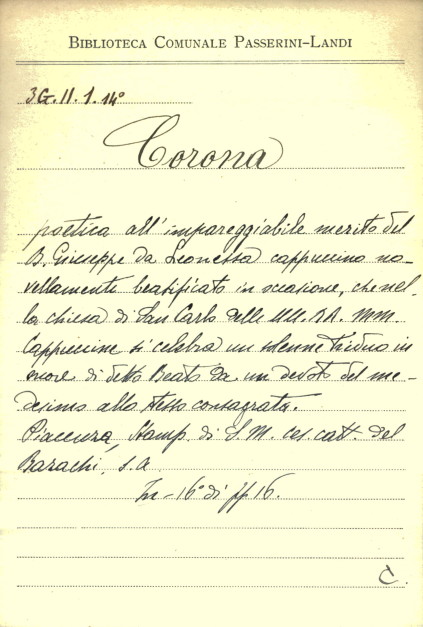 BIBLIOTECA COMUNALE PASSERINI-LANDI
3G.II.1.14°
Corona
poetica all'impareggiabile merito del
B. Giuseppe da Leonessa cappuccino no-
vellamente beatificato in occasione, che nel-
la chiesa di San Carlo delle MM. RR. MM.
Cappuccine si celebra un solenne triduo in
onore di detto Beato da un devoto del me-
desimo allo stesso consagrata.
Piacenza, Stamp. di S. M. ces. catt. del
Barachi, s.a
In-16° di ff 16.
C.